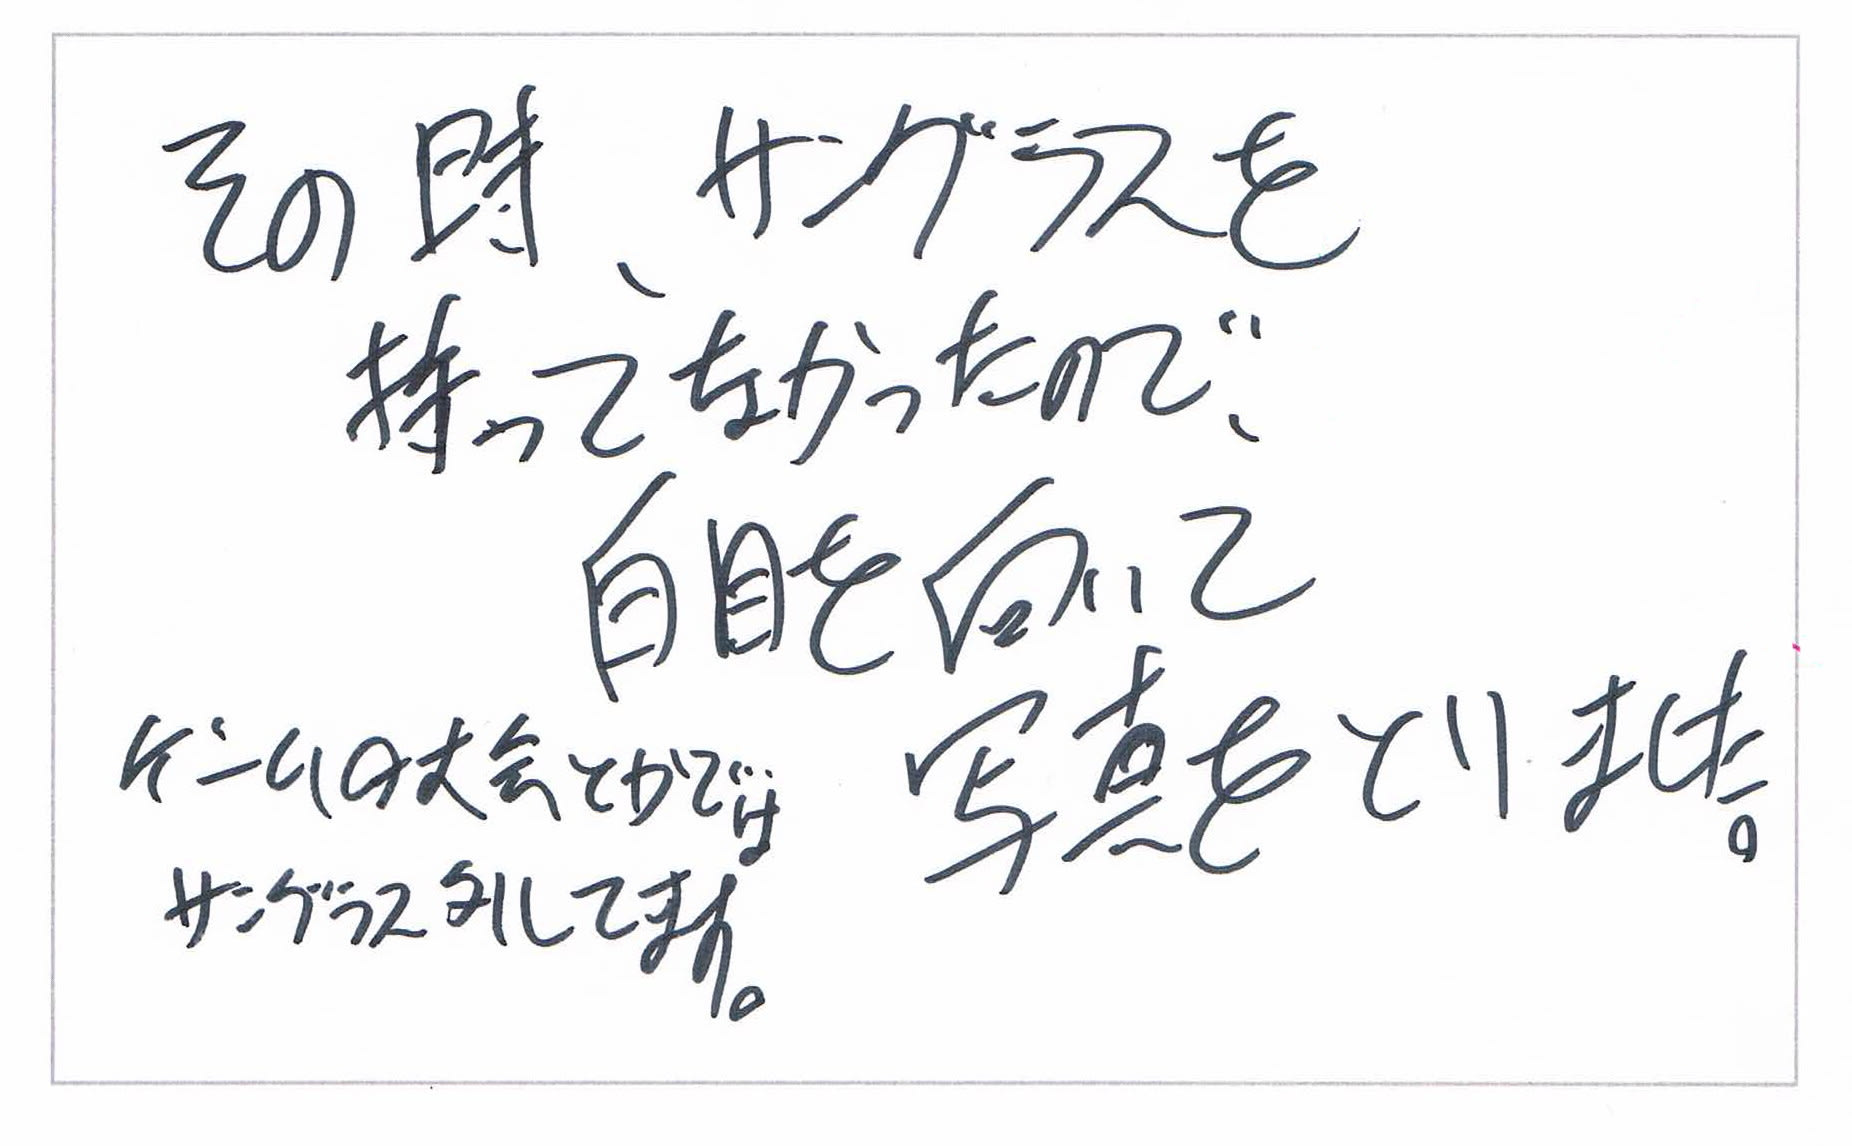 その時、サングラスを
持ってなかったので、
白目を向いて
写真をとりました。
ゲームの大会とかでは
サングラス外してます。